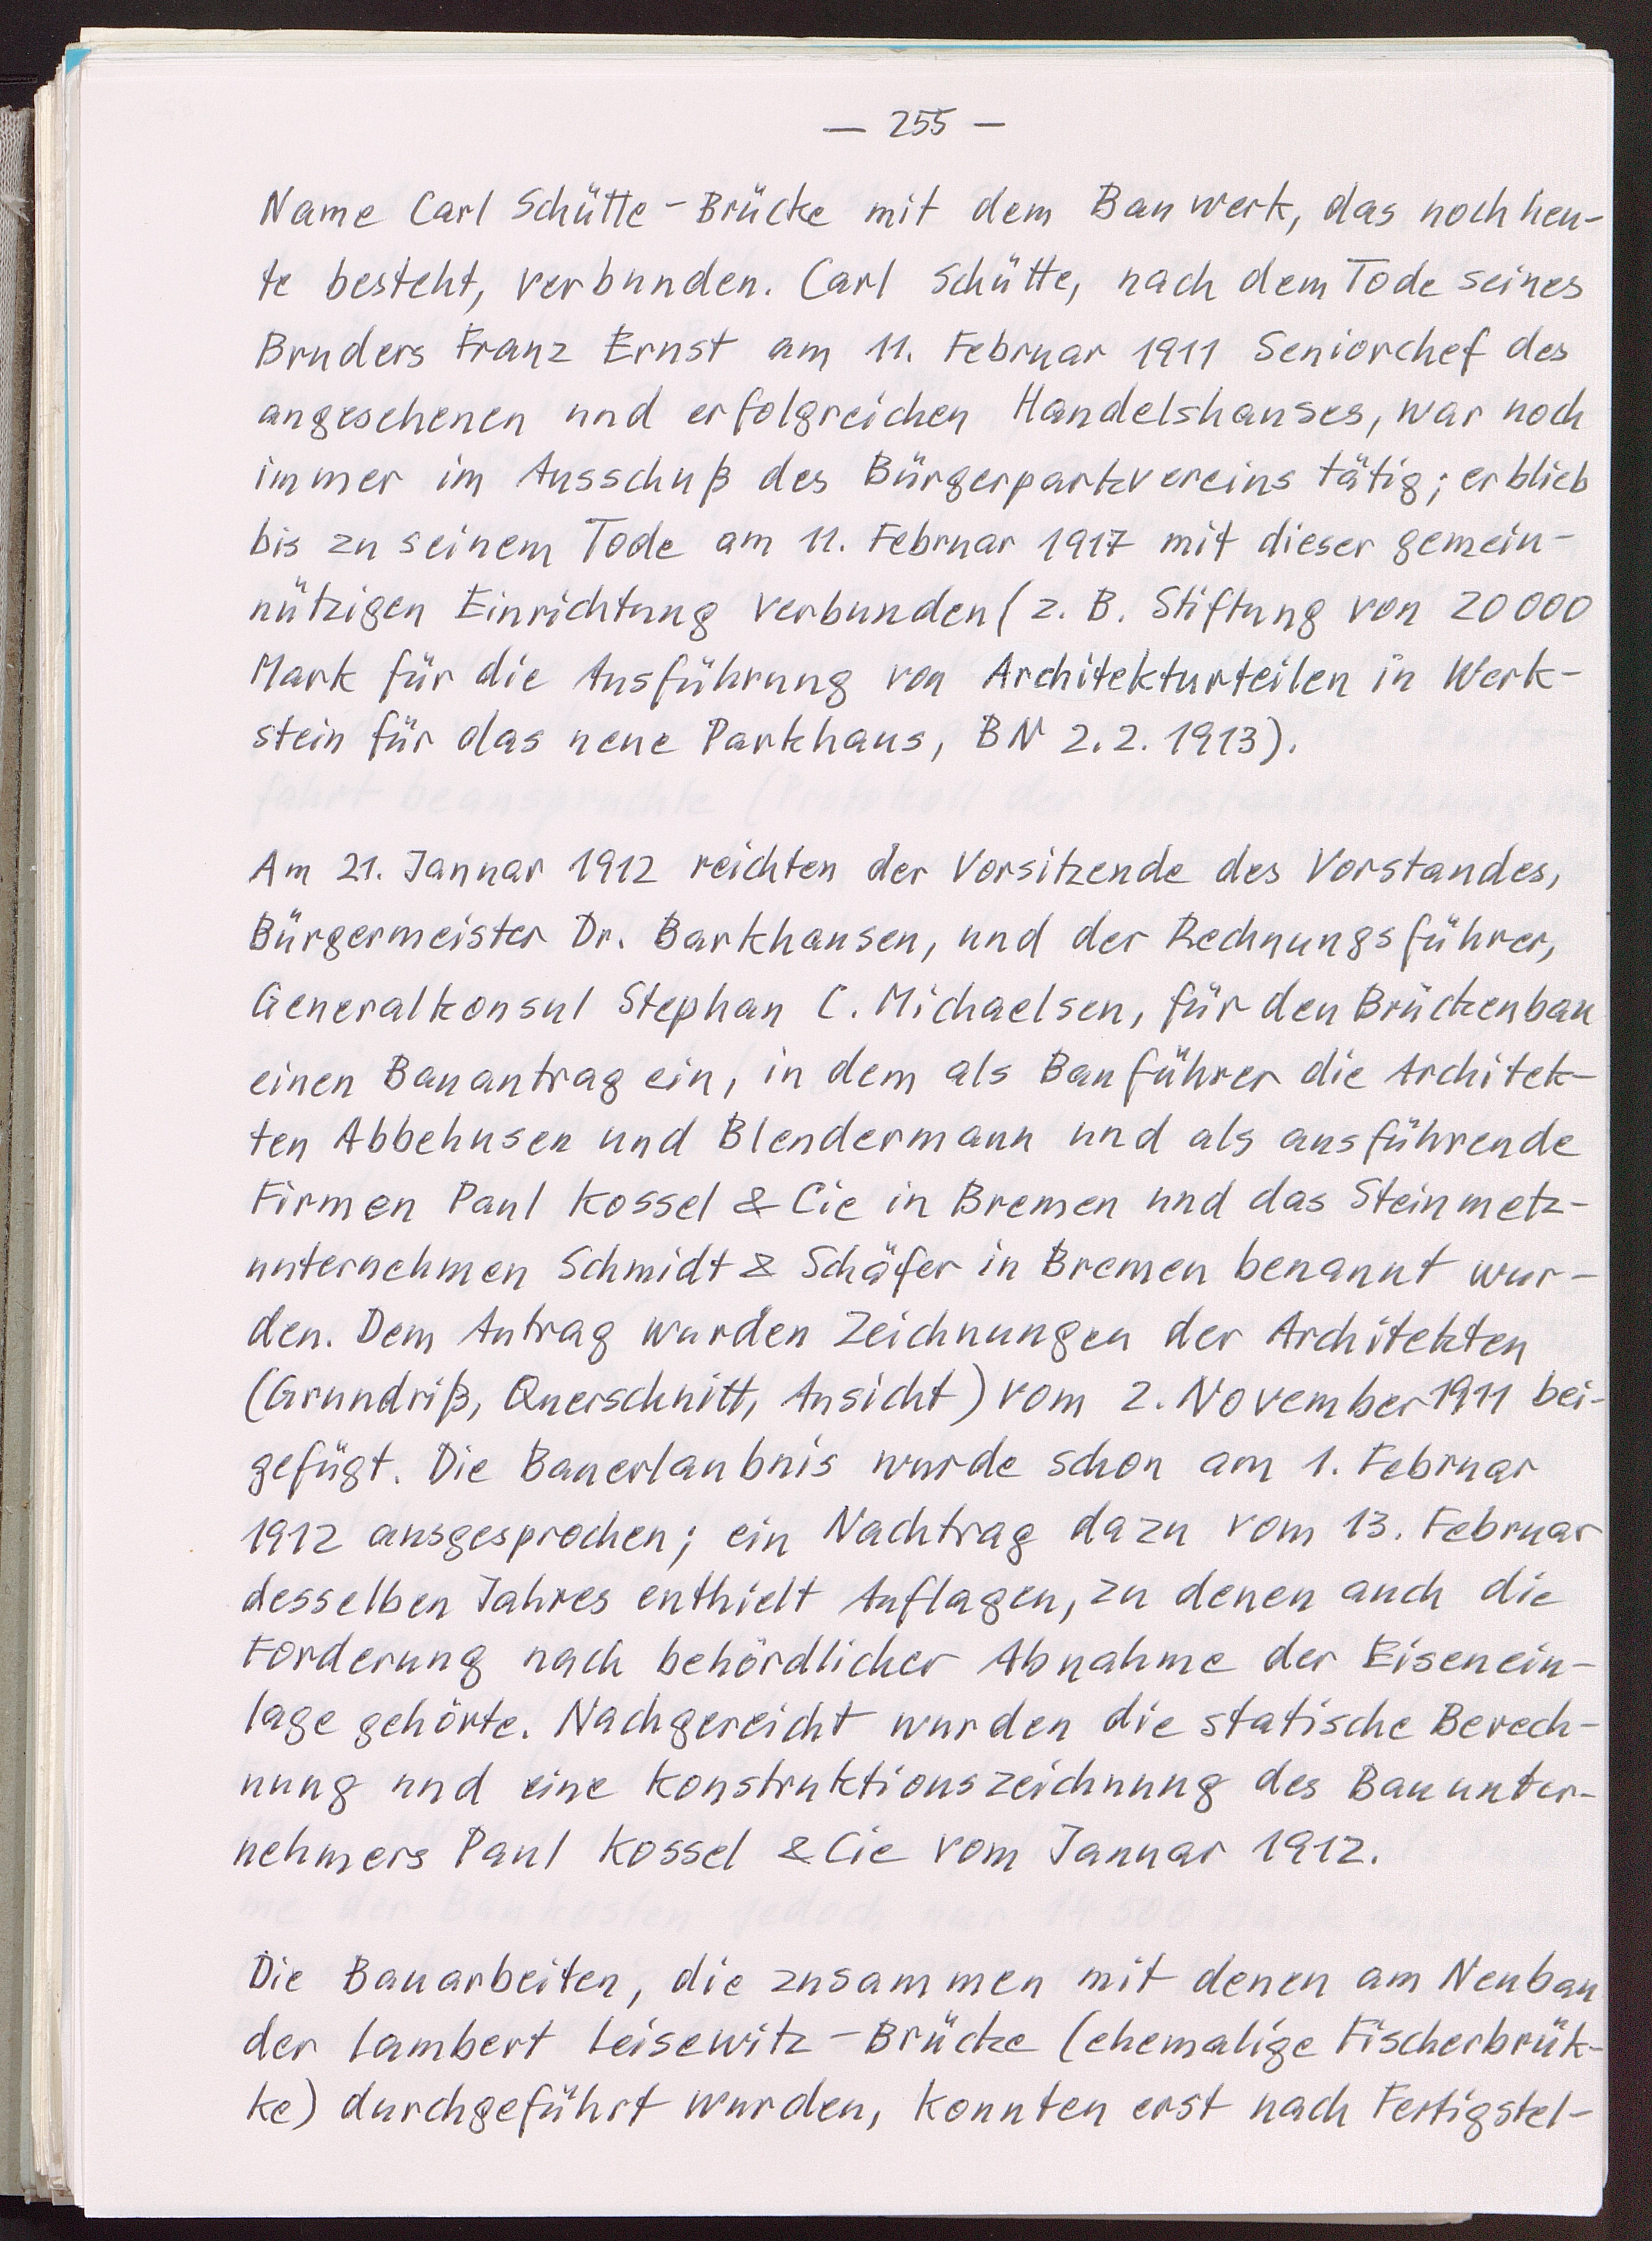 — 255 —
Name Carl Schütte-Brücke mit dem Bauwerk, das noch heu-
te besteht, verbunden. Carl Schütte, nach dem Tode seines
Bruders Franz Ernst am 11. Februar 1911 Seniorchef des
angesehenen und erfolgreichen Handelshauses, war noch
immer im Ausschuß des Bürgerparkvereins tätig; er blieb
bis zu seinem Tode am 11. Februar 1917 mit dieser gemein-
nützigen Einrichtung verbunden (z. B. Stiftung von 20 000
Mark für die Ausführung von Architekturteilen in Werk-
stein für das neue Parkhaus, BN 2.2.1913).
Am 21. Januar 1912 reichten der Vorsitzende des Vorstandes,
Bürgermeister Dr. Barkhausen, und der Rechnungsführer,
Generalkonsul Stephan C. Michaelsen, für den Brückenbau
einen Bauantrag ein, in dem als Bauführer die Architek-
ten Abbehusen und Blendermann und als ausführende
Firmen Paul Kossel & Cie in Bremen und das Steinmetz-
unternehmen Schmidt & Schäfer in Bremen benannt wur-
den. Dem Antrag wurden Zeichnungen der Architekten
(Grundriß, Querschnitt, Ansicht) vom 2. November 1911 bei-
gefügt. Die Bauerlaubnis wurde schon am 1. Februar
1912 ausgesprochen; ein Nachtrag dazu vom 13. Februar
desselben Jahres enthielt Auflagen, zu denen auch die
Forderung nach behördlicher Abnahme der Eisenein-
lage gehörte. Nachgereicht wurden die statische Berech-
nung und eine Konstruktionszeichnung des Bauunter-
nehmers Paul Kossel & Cie vom Januar 1912.
Die Bauarbeiten, die zusammen mit denen am Neubau
der Lambert Leisewitz-Brücke (ehemalige Fischerbrük-
ke) durchgeführt wurden, konnten erst nach Fertigstel-